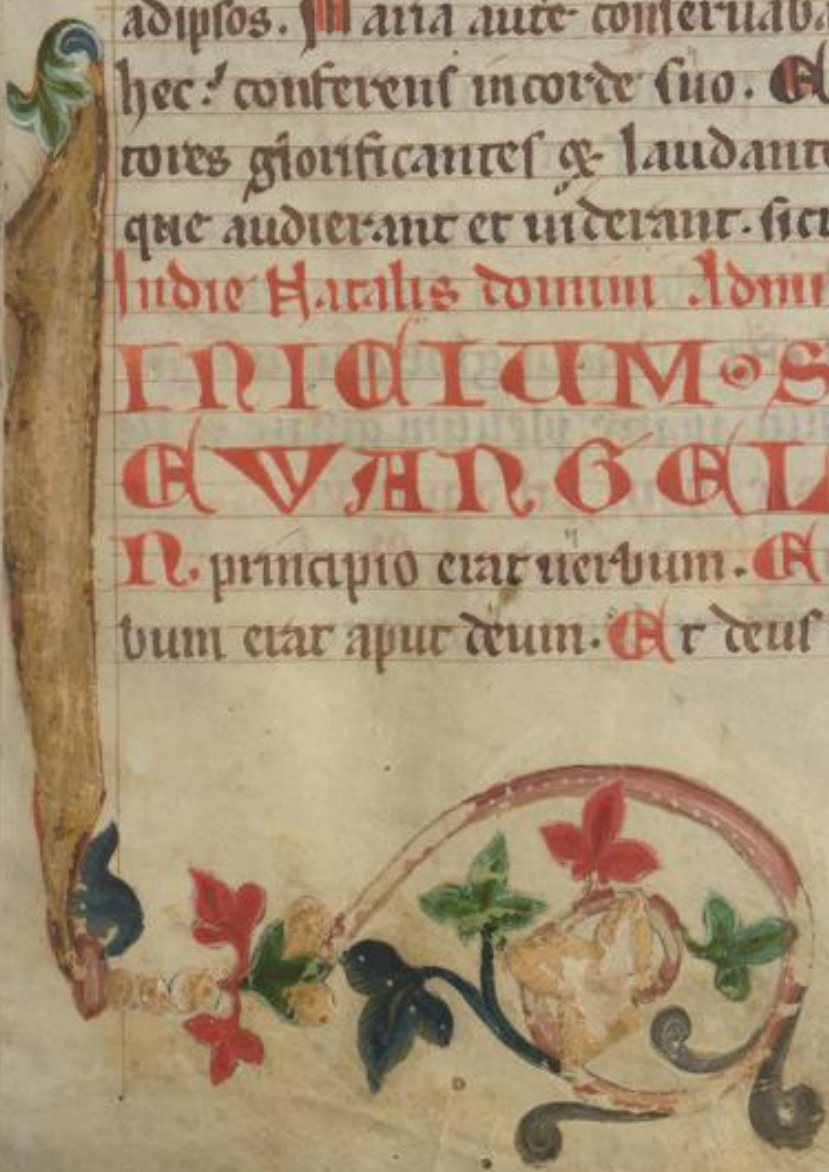 adipsos. Maria aute conseruaba
hec: conferens incorde suo.
tores glorificantes & laudant
que audierant et uiderant. sic
Indie Natalis domini Admi
INICIUM S
EVANGEL
N. principio erat uerbum. E
bum erat aput deum. Et deus